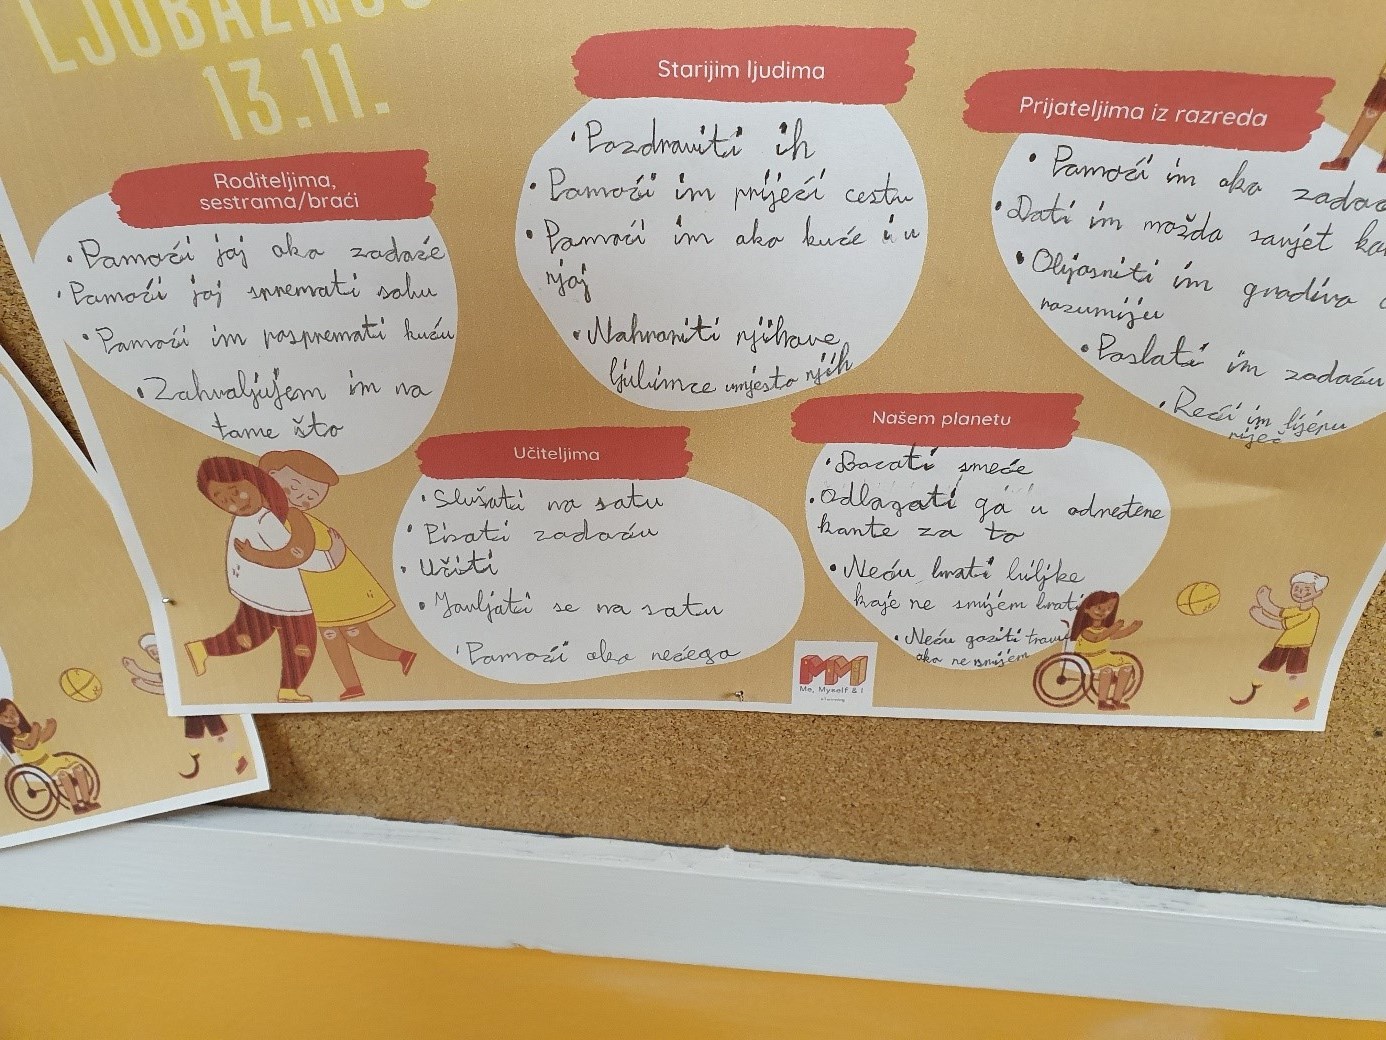 LJUBAZNOS
13.11.
Roditeljima,
sestrama/braći
• Pomoći joj oko zadaće
• Pomoći joj spremati sobu
• Pomoći im pospremati kuću
• Zahvaljujem im na
tome što
Starijim ljudima
• Pozdraviti ih
• Pomoći im prijeći cestu
• Pomoći im oko kuće i u
njoj
• Nahraniti njihove
ljubimce umjesto njih
Prijateljima iz razreda
• Pomoći im oko
• Dati im možda savjet
• Objasniti im gradivo
razumiju
• Poslati im zadaću
• Reći im lijepu
riječ
Učiteljima
• Slušati na satu
• Pisati zadaću
• Učiti
• Javljati se na satu
• Pomoći oko nečega
Našem planetu
• Bacati smeće
• Odlagati ga u određene
kante za to
• Neću brati biljke
koje ne smijem brati
• Neću gaziti travu
ako ne smijem
MM
Me, Myself & I